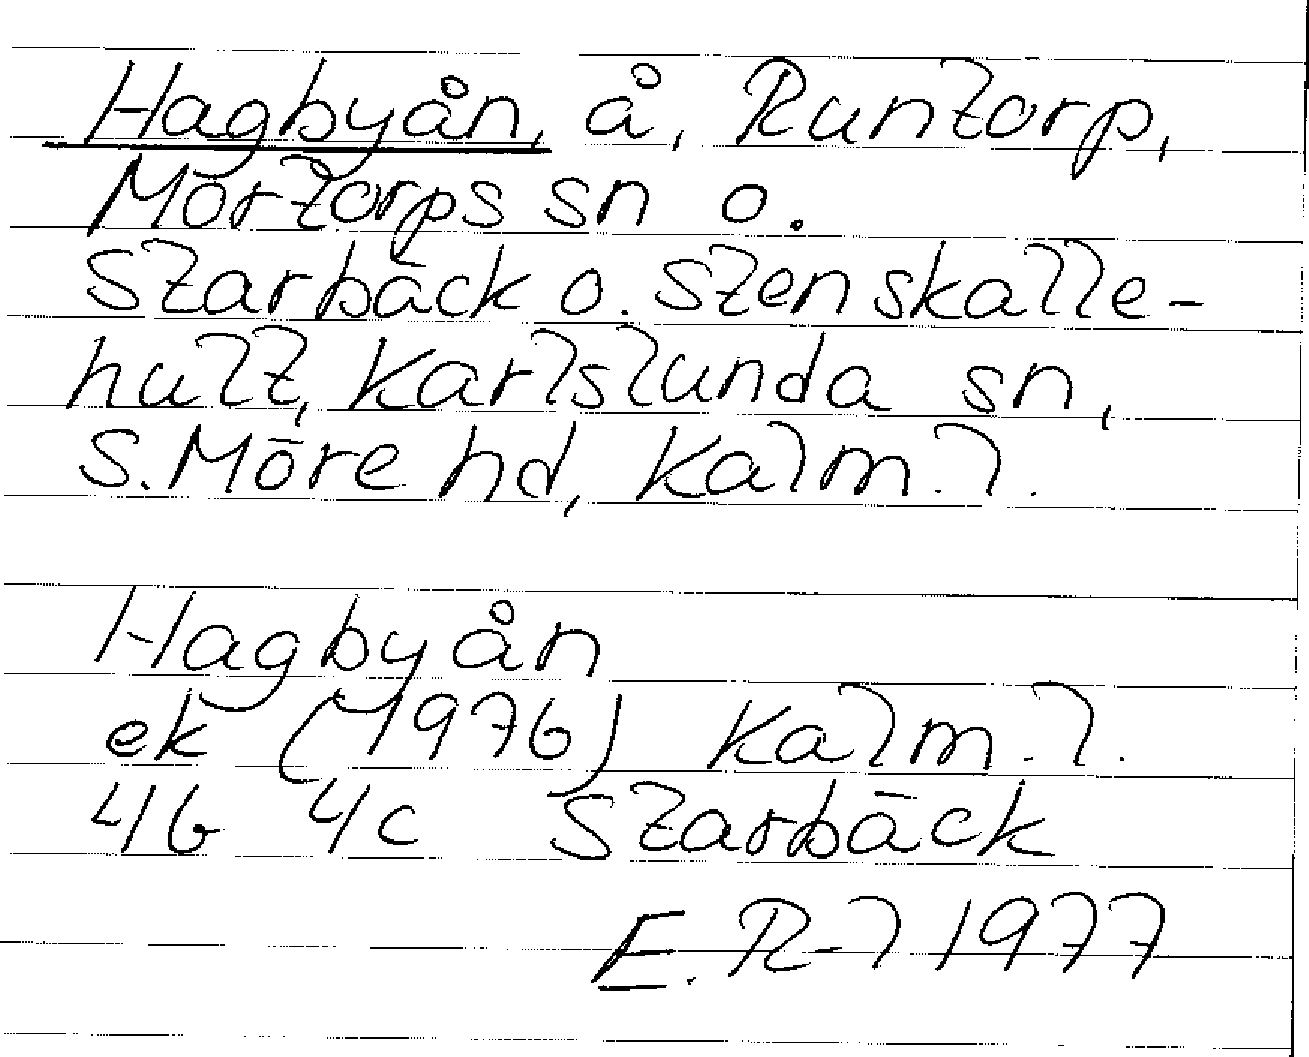 Hagbyån, å, Runtorp,
Mörtorps sn o.
Starbäck o. Stenskalle-
hult, Karlslunda sn,
S. Möre hd, Kalm. l.
Hagbyån
ek (1976) Kalm. l.
4b 4c Starbäck
E. R-l 1977